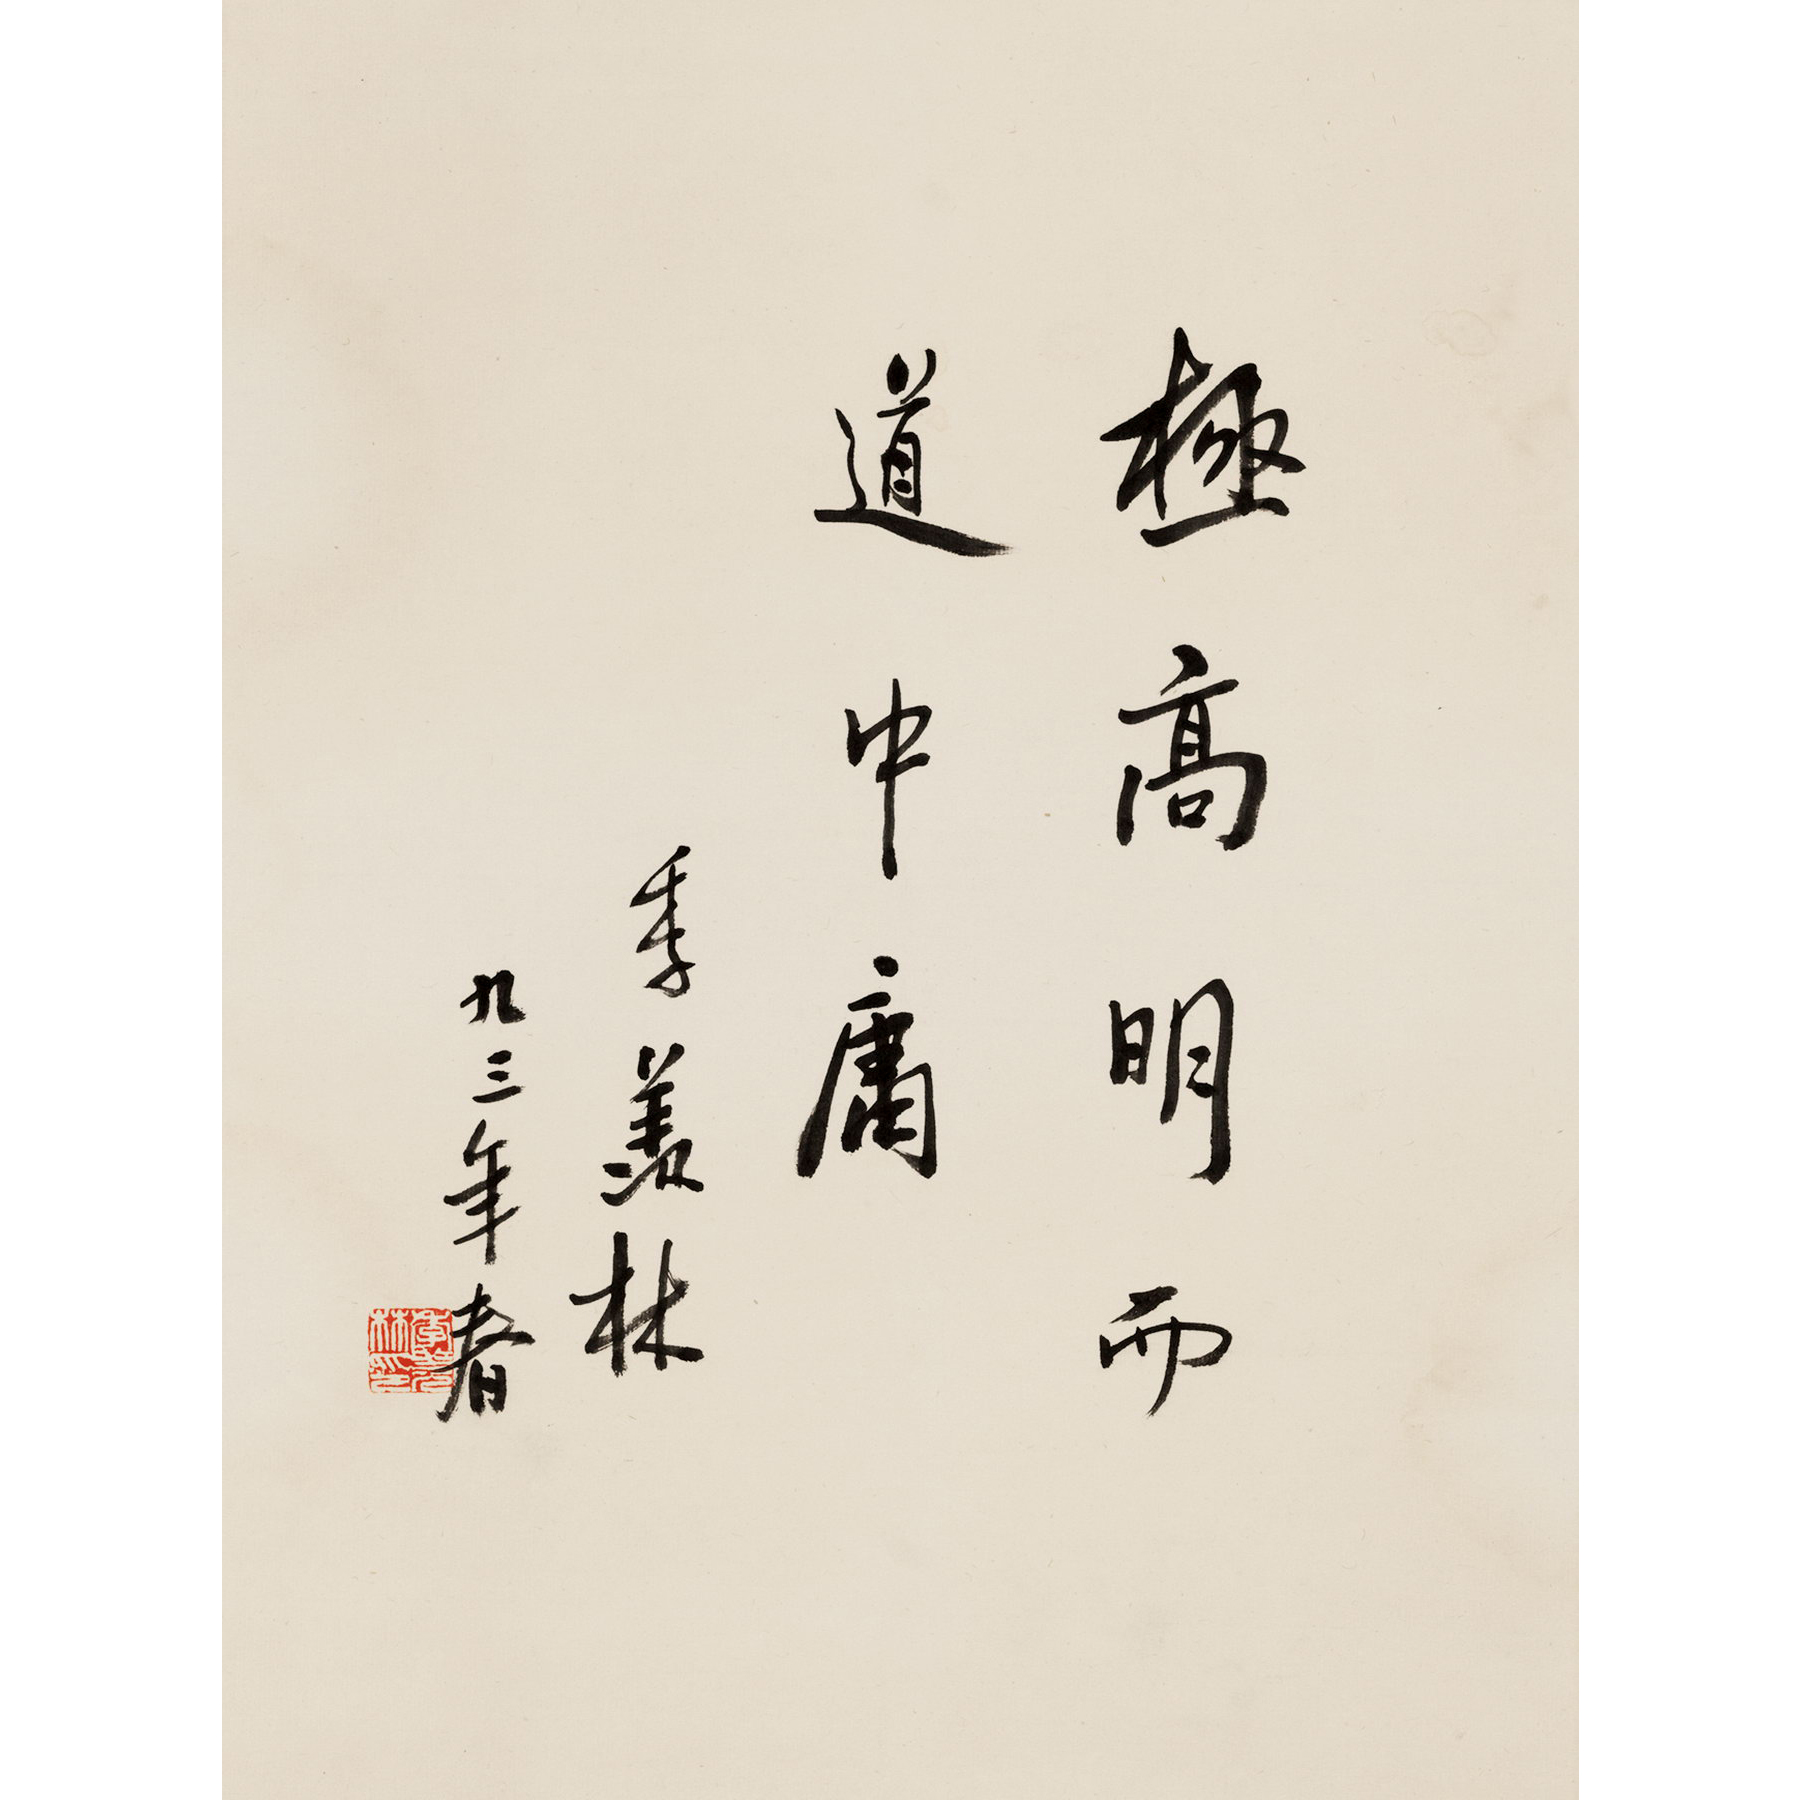 極高明而
道中庸
季羡林
九三年春
季羡林印